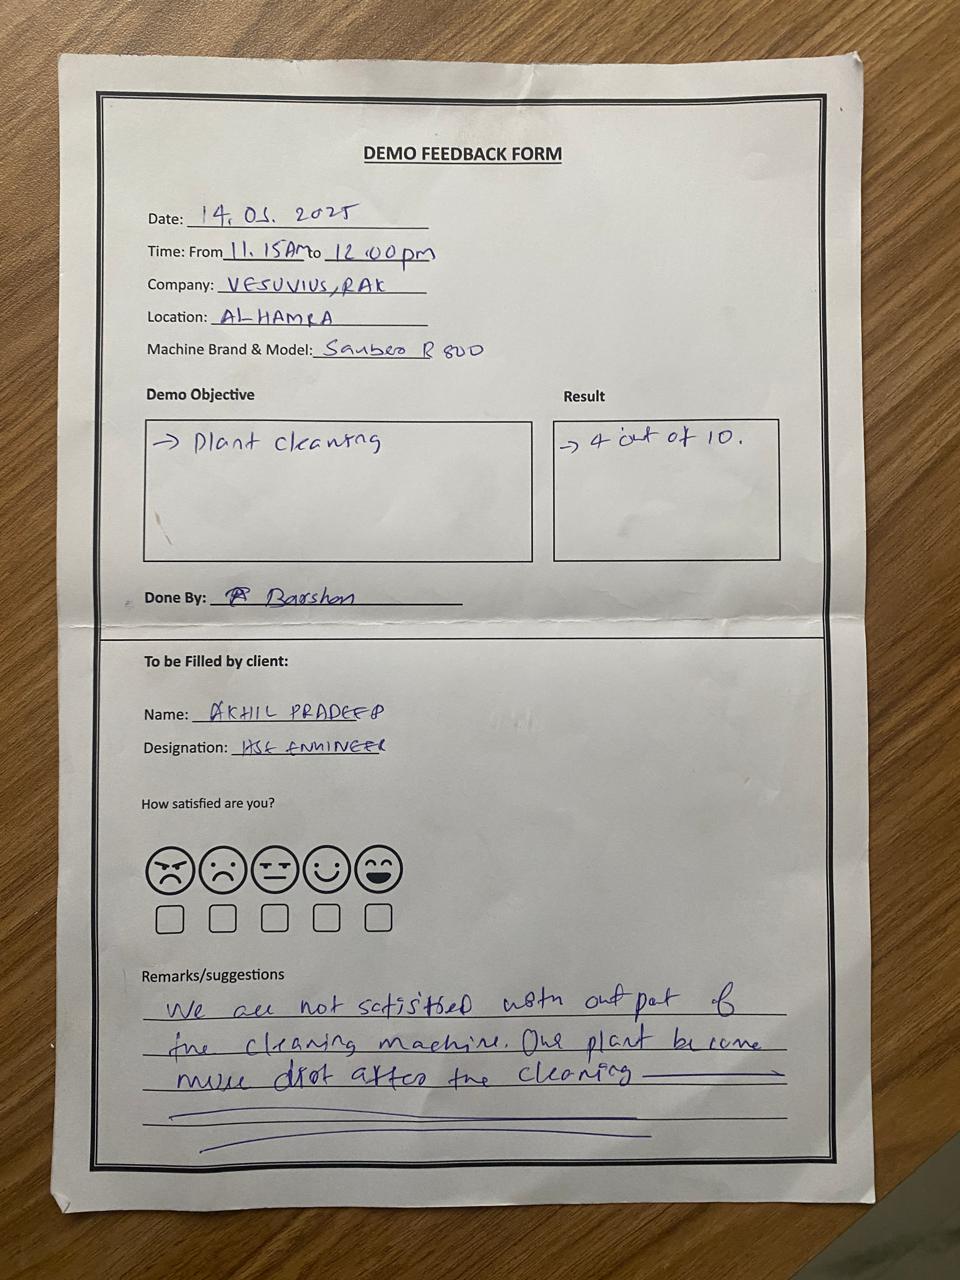 DEMO FEEDBACK FORM
Date: 14. 05. 2025
Time: From 11.15AM to 12.00pm
Company: VESUVIUS, RAK
Location: AL HAMRA
Machine Brand & Model: Saubeo R 800
Demo Objective
Result
→ Plant cleaning
→ 4 out of 10.
Done By: Barshan
To be Filled by client:
Name: AKHIL PRADEEP
Designation: HSE ENGINEER
How satisfied are you?
Remarks/suggestions
We are not satisfied with out put of
the cleaning machine. Our plant become
more dirt after the cleaning